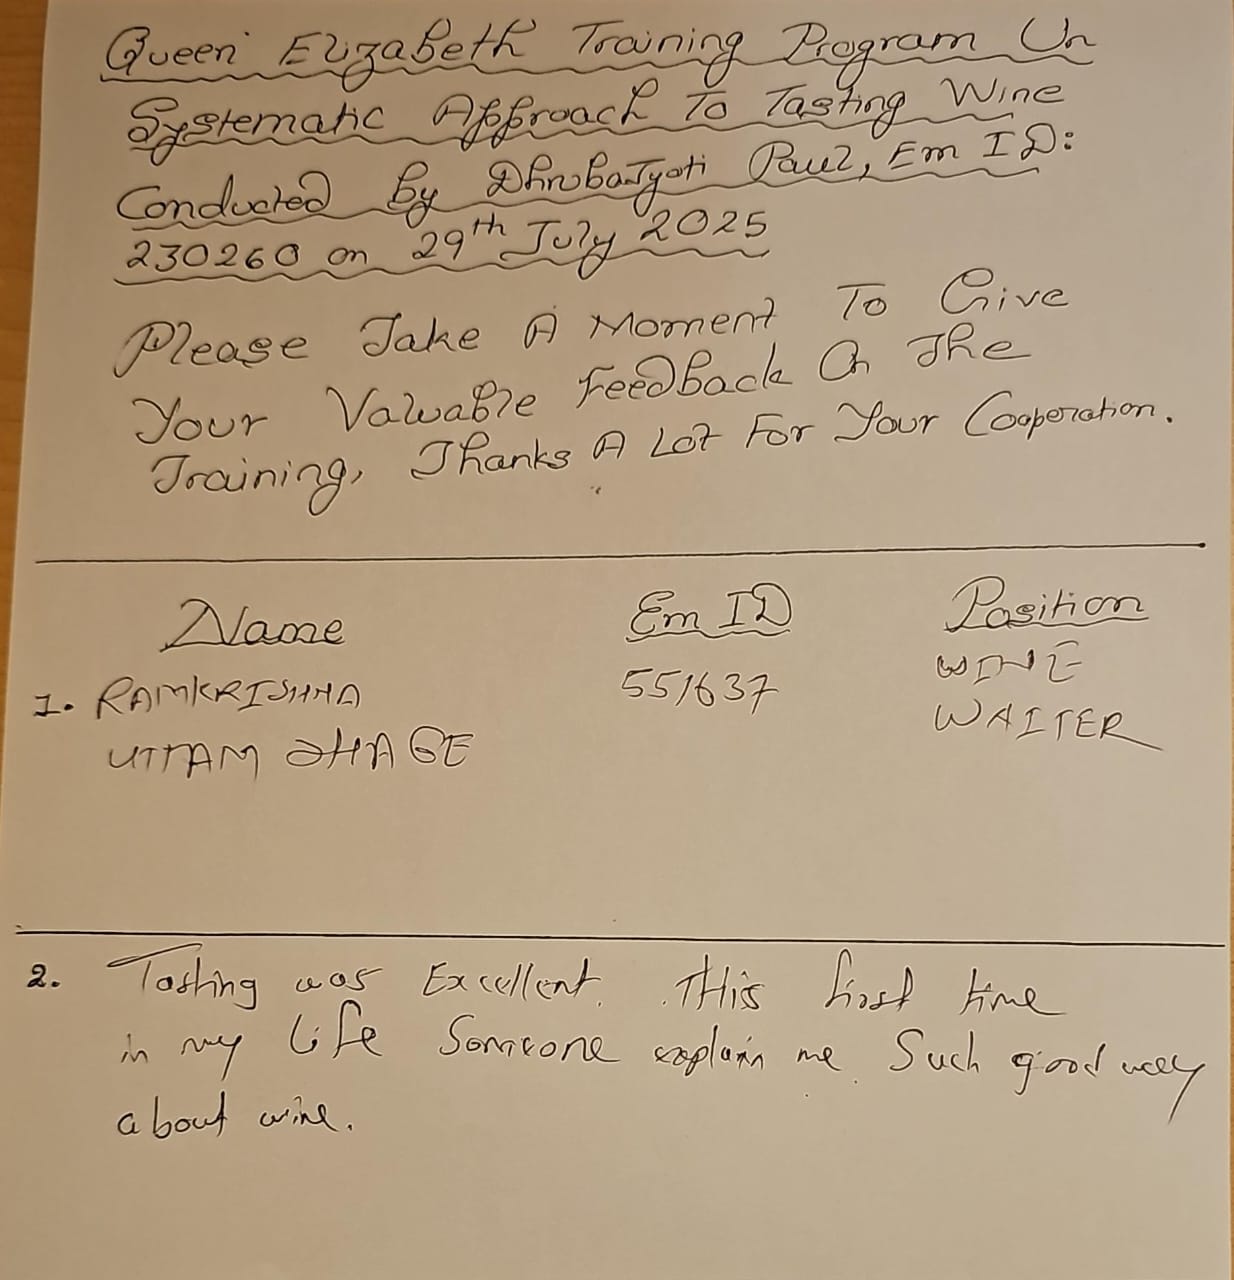 Queen Elizabeth Training Program On
Systematic Approach To Tasting Wine
Conducted By DhrubaJyoti Paul, Em ID:
230260 on 29th July 2025
Please Take A Moment To Give
Your Valuable Feedback On The
Training, Thanks A Lot For Your Cooperation.
Name Em ID Position
1. RAMKRISHNA 551637 WINE
UTTAM DHAGE WAITER
2. Tasting was Excellent. This first time
in my life Someone explain me Such good way
about wine.